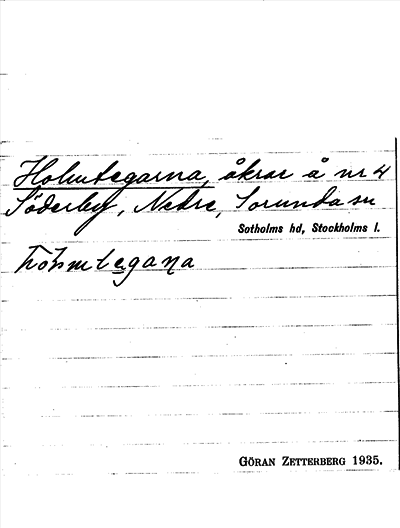 Holmtegarna, åkrar å nr 4
Söderby, Nedre, Sorunda sn
Sotholms hd, Stockholms l.
GÖRAN ZETTERBERG 1935.